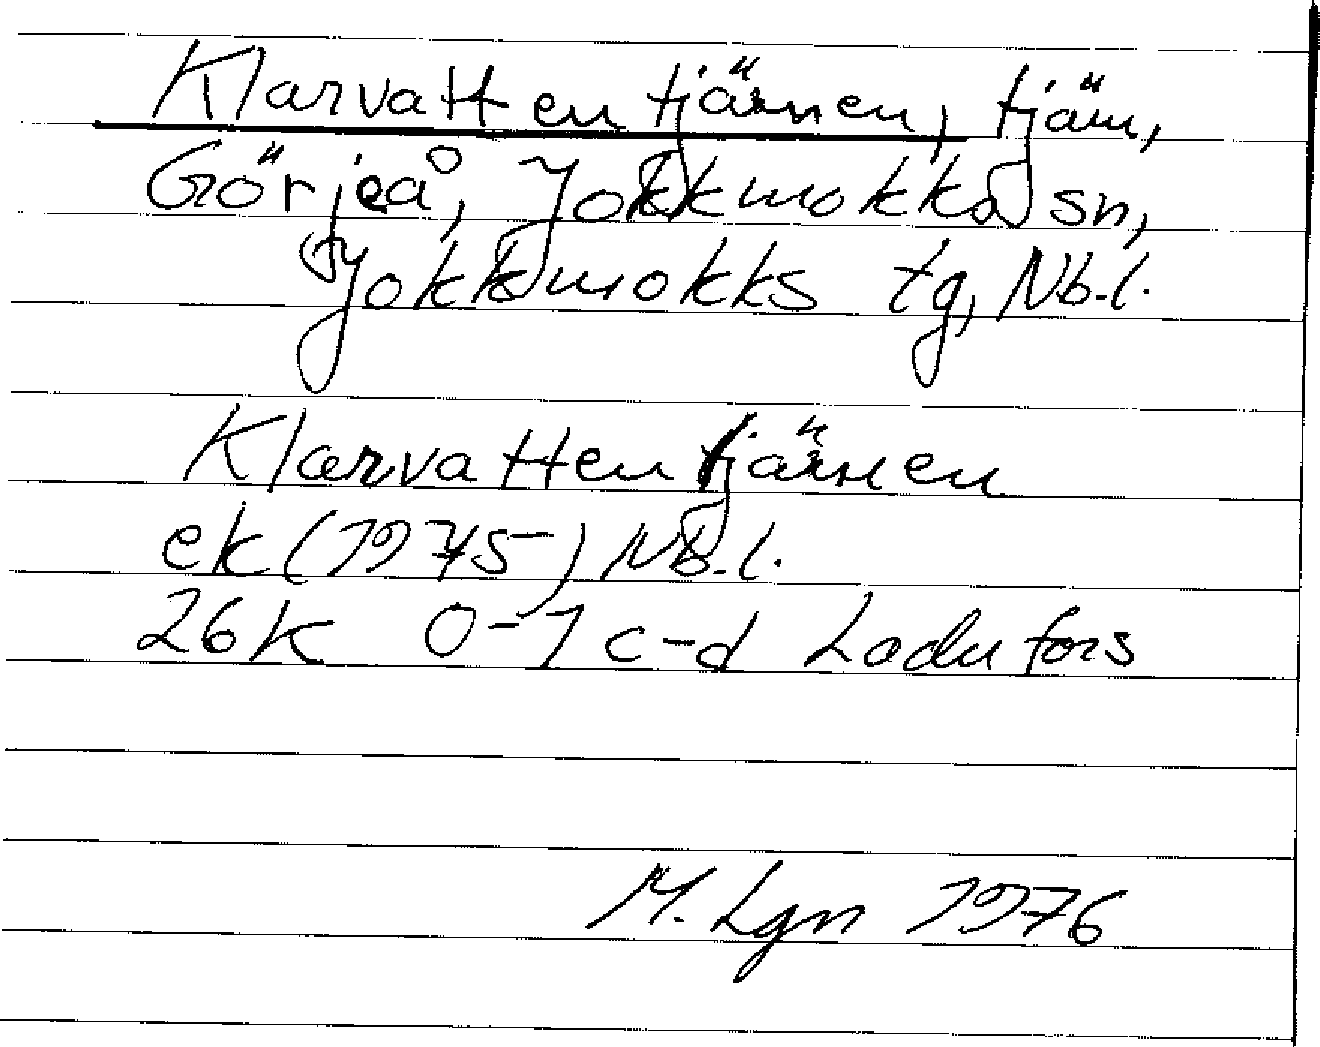 Klarvattentjärnen, tjärn,
Görjeå, Jokkmokks sn,
Jokkmokks tg, Nb.l.
Klarvattentjärnen
ek (1975) Nb.l.
26K 0-1 c-d Ladufors
M. Lgn 1976